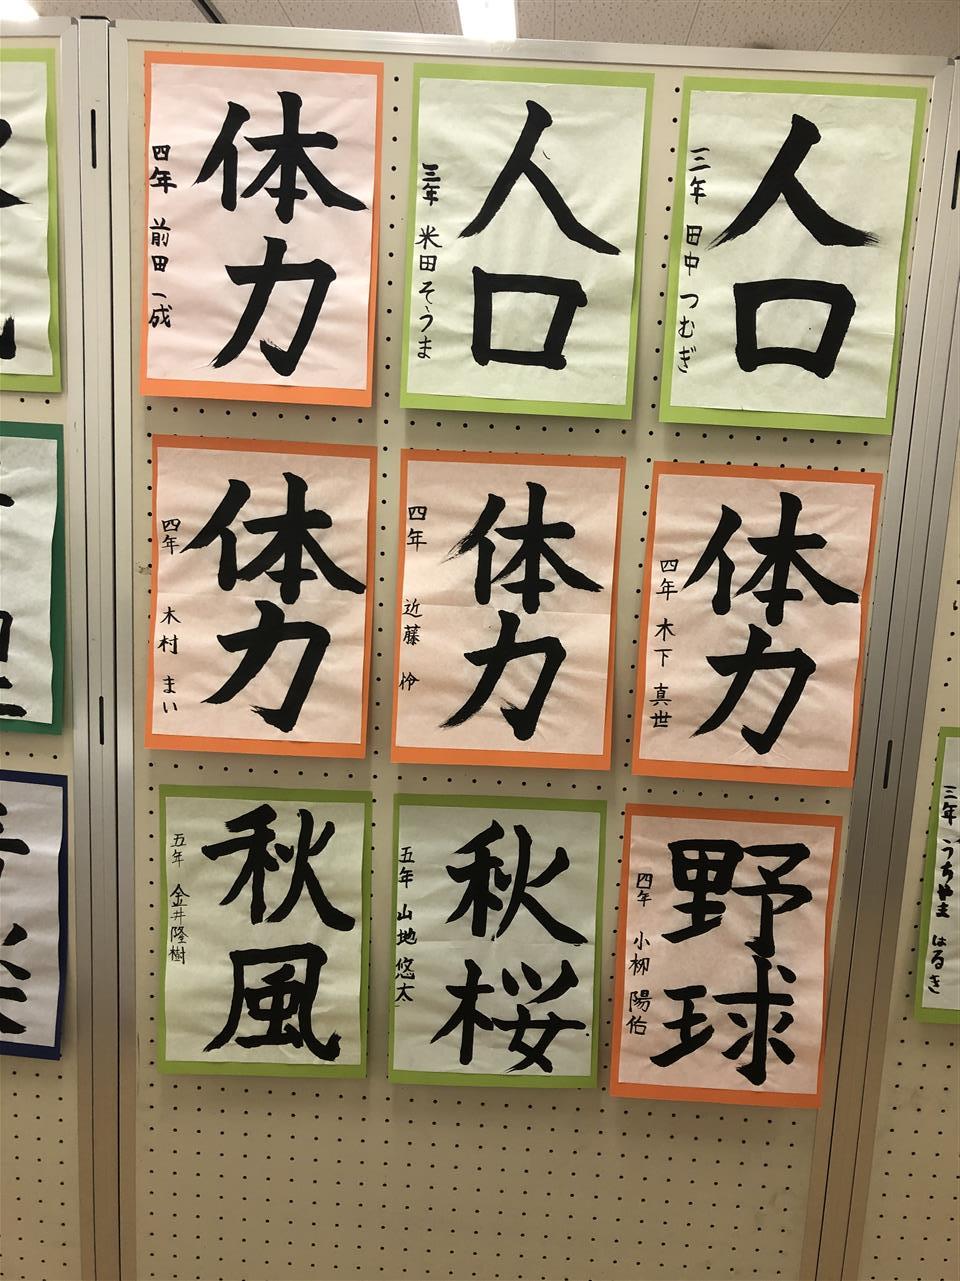 人口
三年 田中 つむぎ
人口
三年 米田 そうま
体力
四年 前田 一成
体力
四年 木下 真世
体力
四年 近藤 怜
体力
四年 木村 まい
野球
四年 小栁 陽佑
秋桜
五年 山地 悠太
秋風
五年 金井隆樹
三年 うちやま はるき